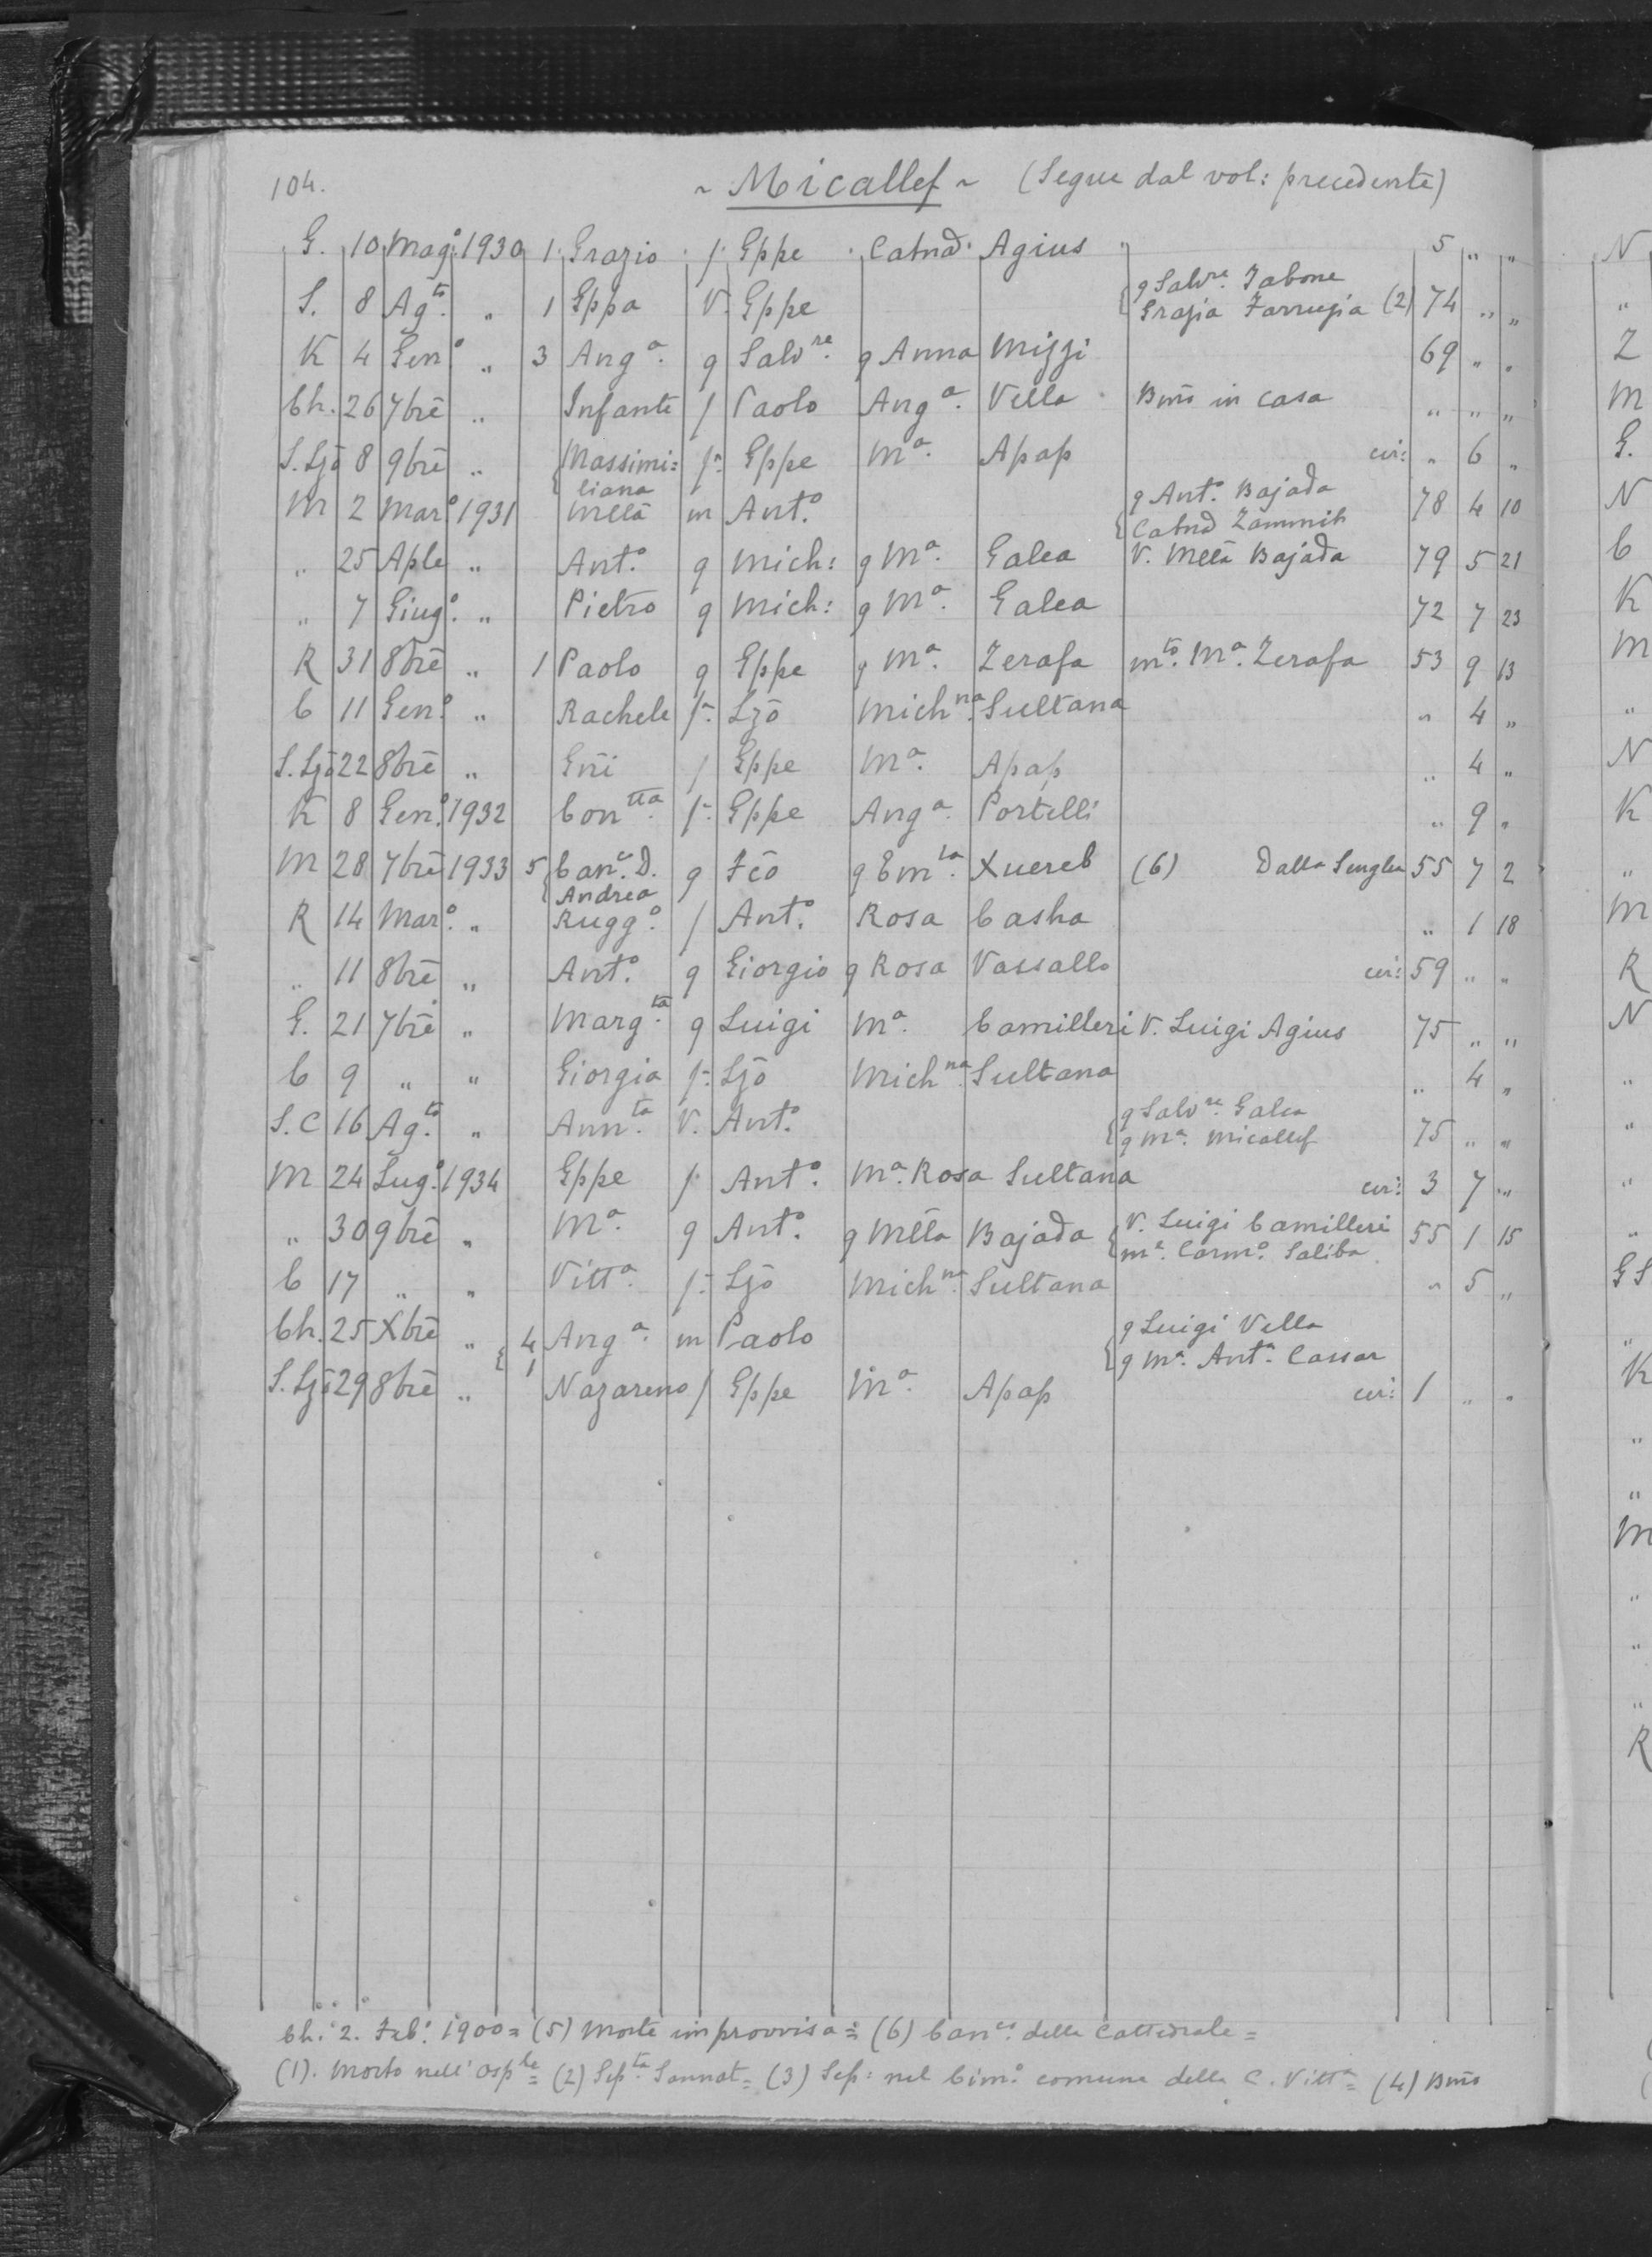 104. ~ Micallef ~ (Segue dal vol: precedente)
G. 10 Mag.o 1930 1. Grazio f. Gppe Catnd. Agius 5 " "
S. 8 Ag.to " 1 Gppa V. Gppe { q Salv.re Tabone
Grazia Farrugia (2) 74 " "
K 4 Gen.o " 3 Ang.a q Salv.re q Anna Mizzi 69 " "
Ch. 26 7bre " Infante f Paolo Ang.a Vella Bmo in casa " " "
S. Ljō 8 9bre " { Massimi= f. Gppe M.a Apap cir: " 6 "
liana
M 2 Mar.o 1931 Mela m Ant.o { q Ant.o Bajada 78 4 10
Catnd Zammit
" 25 Aple " Ant.o q Mich: q M.a Galea V. Mela Bajada 79 5 21
" 7 Giug.o " Pietro q Mich: q M.a Galea 72 7 23
R 31 8bre " 1 Paolo q Gppe q M.a Zerafa m.to M.a Zerafa 53 9 13
C 11 Gen.o " Rachele f. Ljō Mich.na Sultana " 4 "
S. Ljō 22 8bre " Gni f Gppe M.a Apap " 4 "
K 8 Gen.o 1932 Con.tta f. Gppe Ang.a Portelli " 9 "
M 28 7bre 1933 5 { Can.co D. q Fco q Em.la Xuereb (6) Dalla Senglea 55 7 2
Andrea
R 14 Mar.o " Rugg.o f Ant.o Rosa Casha " 1 18
" 11 8bre " Ant.o q Giorgio q Rosa Vassallo cir: 59 " "
G. 21 7bre " Marg.ta q Luigi M.a Camilleri V. Luigi Agius 75 " "
C 9 " " Giorgia f. Ljō Mich.na Sultana " 4 "
S.C 16 Ag.to " Ann.ta V. Ant.o { q Salv.re Galea
q M.a Micallef 75 " "
M 24 Lug.o 1934 Gppe f. Ant.o M.a Rosa Sultana cir: 3 7 "
" 30 9bre " M.a q Ant.o q Mela Bajada { V. Luigi Camilleri 55 1 15
m.e Carm.o Saliba
C 17 " " Vitt.a f. Ljō Mich.na Sultana " 5 "
Ch. 25 Xbre " { 4 Ang.a m Paolo { q Luigi Vella
1 q M.a Ant.a Cassar
S. Ljō 29 8bre " Nazareno f Gppe M.a Apap cir: 1 " "
Ch. 2. Feb.o 1900 = (5) Morte improvvisa = (6) Can.co della Cattedrale =
(1). Morto nell' Osp.le = (2) Sep.ta Sannat = (3) Sep: nel Cim.o comune della C. Vitt.a = (4) Bmo